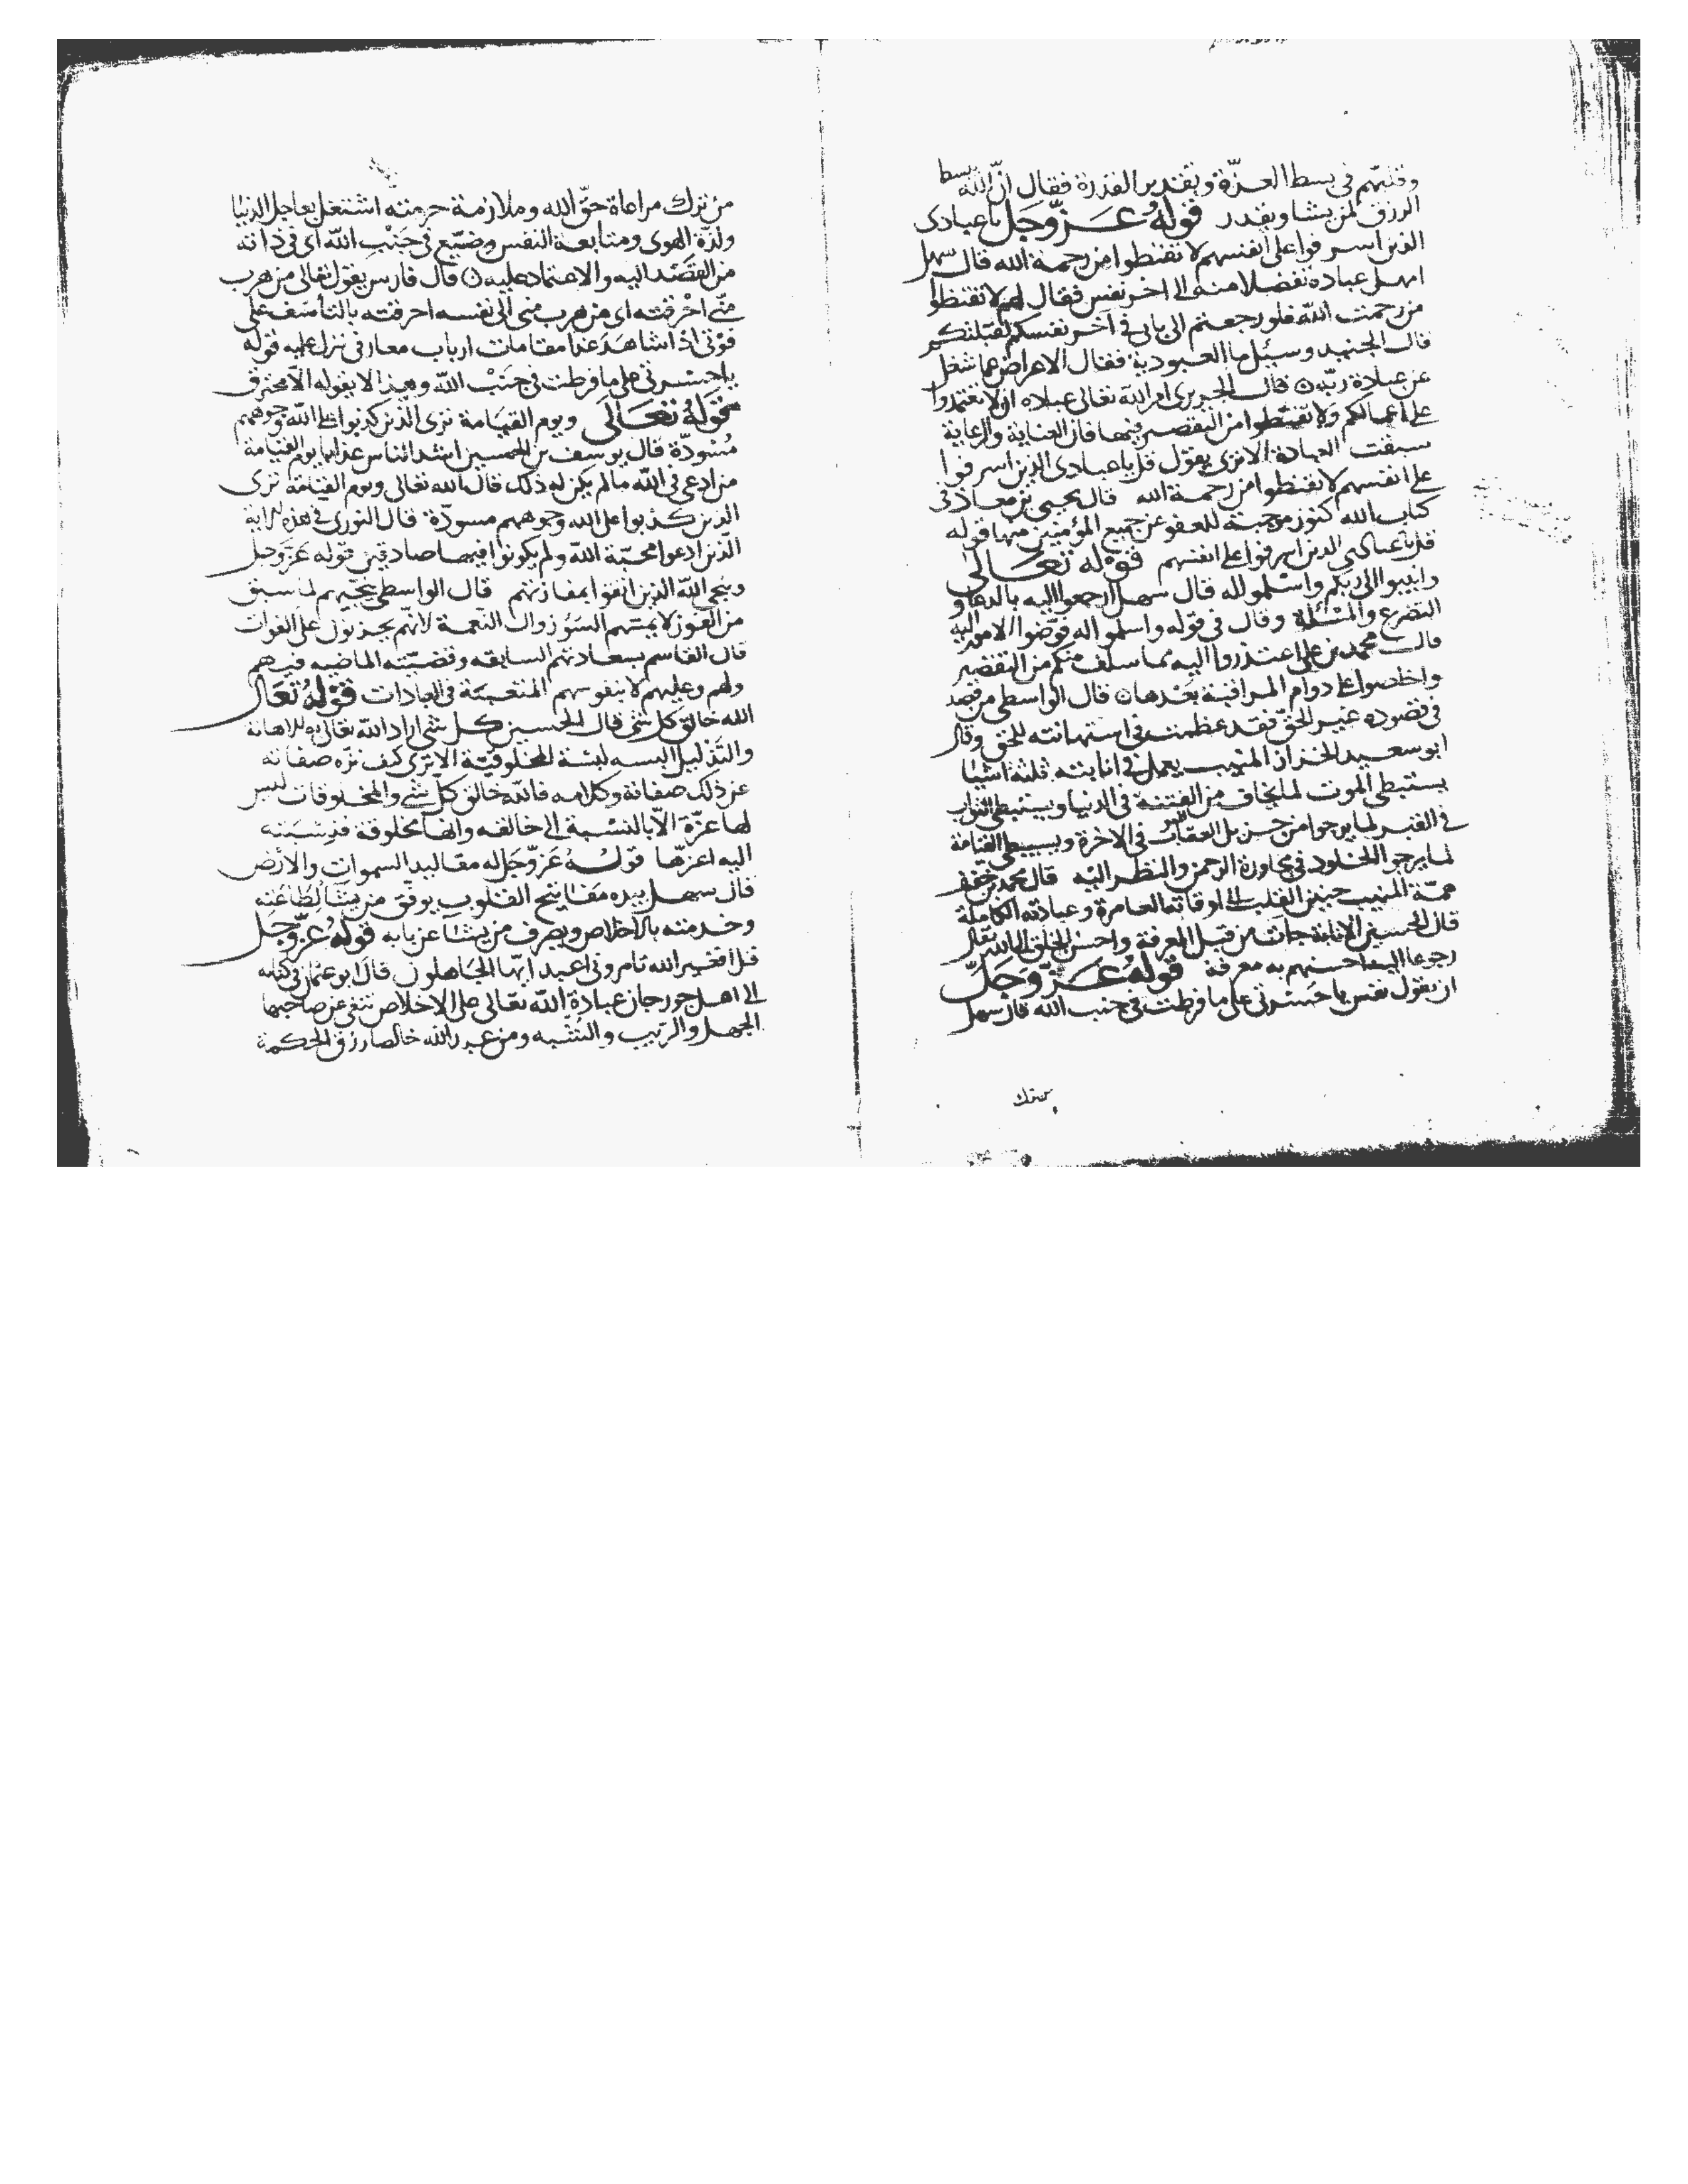 وقلبهم في بسط العزة وتقدير القدرة فقال ان الله يبسط
الرزق لمن يشا ويقدر قوله عز وجل يا عبادى
الذين اسرفوا على انفسهم لا تقنطوا من رحمة الله قال سهل
امهل عباده تفضلا منه الى اخر نفس فقال لهم لا تقنطوا
من رحمت الله فلو رجعتم الى بابى في آخر نفسكم لقبلتكم
قال الجنيد وسئل ما العبودية فقال الاعراض عما شغل
عن عبادة ربه ن قال الجريرى امر الله تعالى عباده ان لا تعتمدوا
على اعمالكم ولا تقنطوا من التقصير فيها فان العناية والرعاية
سبقت العبادة الا ترى يقول قل يا عبادى الذين اسرفوا
على انفسهم لا تقنطوا من رحمة الله قال يحيى بن معاذ في
كتاب الله كنوز موجبة للعفو عن جميع المؤمنين منها قوله
قل يا عبادى الذين اسرفوا على انفسهم قوله تعالى
وانيبوا الى ربكم واسلموا له قال سهل ارجعوا اليه بالدعا و
التضرع والمسئلة وقال في قوله واسلموا له فوضوا الامور اليه
قال محمد بن على اعتذروا اليه مما سلف منكم من التقصير
واخلصوا على دوام المراقبة بعدها ن قال الواسطى من قصد
في قصوده غير الحق فقد عظمت في استهانته للحق وقال
ابو سعيد الخزاز المنيب يعمل في انابته ثلثة اشيا
يستبطى الموت لما يخاف من الفتنة في الدنيا ويستبطى الثواب
في القبر لما يرجوا من جزيل العقاب في الاخرة ويستبطى القيامة
لما يرجو الخلود في مجاورة الرحمن والنظر اليه قال محمد بن خفيف
همة المنيب حنين القلب الى اوقاته العامرة وعباداته الكاملة
قال الحسين الانابة جات من قبل المعرفة واحسن الخلق
رجوعا اليه احسنهم به معرفة قوله عز وجل
ان تقول نفس يا حسرتى على ما فرطت في جنب الله قال سهل
من ترك
من ترك مراعاة حق الله وملازمة حرمته اشتغل بعاجل الدنيا
ولذة الهوى ومتابعة النفس وضيع في جنب الله اى في ذاته
من القصد اليه والاعتماد عليه ن قال فارس يقول تعالى من هرب
منى احرقته اى من هرب منى الى نفسه احرقته بالتاسف على
فوتى اذا شاهد غدا مقامات ارباب معارفى نزل عليه قوله
يا حسرتى على ما فرطت في جنب الله وهذا لا يقوله الا محترق
قوله تعالى ويوم القيامة ترى الذين كذبوا على الله وجوههم
مسودة قال يوسف بن الحسين اشد الناس عذابا يوم القيامة
من ادعى في الله ما لم يكن له ذلك قال الله تعالى ويوم القيامة ترى
الذين كذبوا على الله وجوههم مسودة قال النورى في هذه الاية
الذين ادعوا محبة الله ولم يكونوا فيها صادقين قوله عز وجل
وينجى الله الذين اتقوا بمفازتهم قال الواسطى ينجيهم لما سبق
من الفوز لا يمسهم السو زوال النعمة لانهم يحزنون على الفوات
قال القاسم بسعادتهم السابقه وقضيته الماضيه فيهم
ولهم وعليهم لا بنفوسهم المتعبة في العبادات قوله تعالى
الله خالق كل شى قال الحسين كل شى اراد الله تعالى به الاهانة
والتذليل البسه لبسة المخلوقية الا ترى كيف نزه صفاته
عن ذلك صفاته وكلامه فالله خالق كل شى والمخلوقات ليس
لها عزة الا بالنسبة الى خالقه وانها مخلوقة فنسبته
اليه اعزها قوله عز وجل له مقاليد السموات والارض
قال سهل بيده مفاتيح القلوب يوفق من يشا لطاعته
وخدمته بالاخلاص ويصرف من يشا عن بابه قوله عز وجل
قل افغير الله تامرونى اعبد ايها الجاهلون قال ابو عثمان في كتابه
الى اهل جورجان عبادة الله تعالى على الاخلاص تنفى عن صاحبها
الجهل والريب والتشبه ومن عبد الله خالصا رزق الحكمة